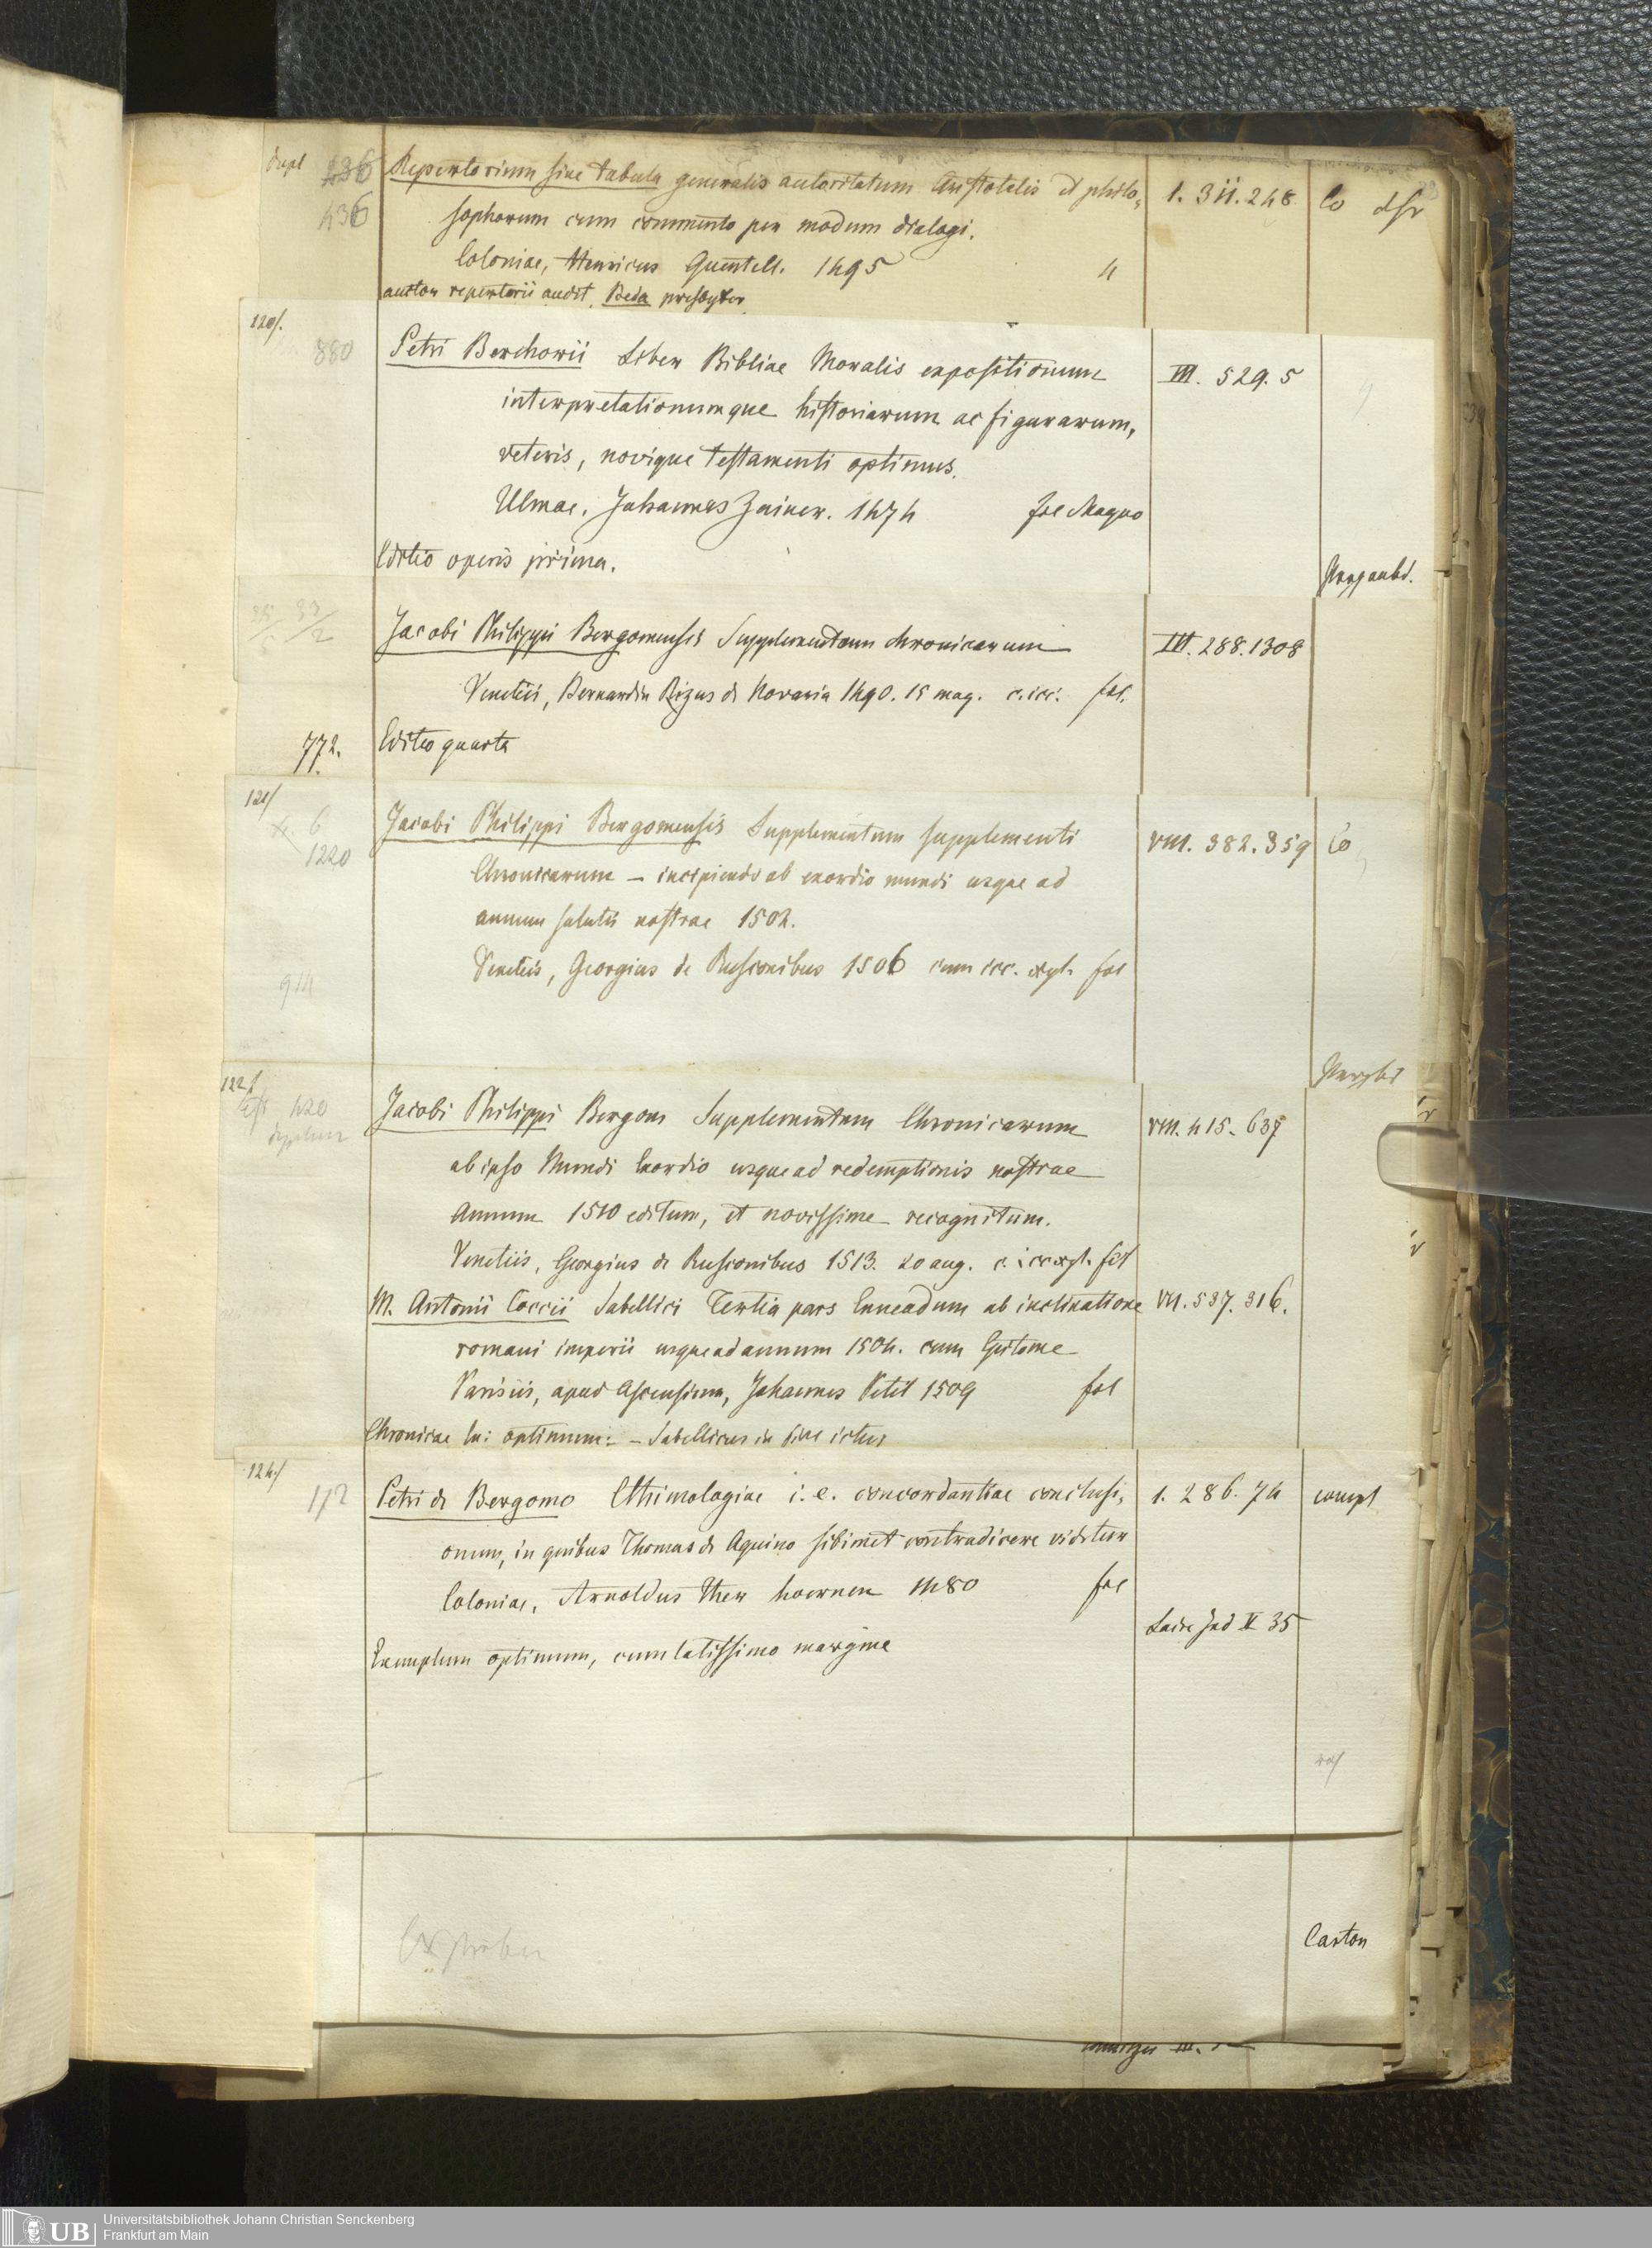 dupl 436 Repertorium sive tabula generalis autoritatum Aristotelis et philo-
I. 311. 248 Co
436 sophorum cum commento per modum dialogi.
Coloniae, Henricus Quentell. 1495 4
auctor repertorii audit Beda presbyter.
120/.
880 Petri Berchorii Liber Bibliae Moralis expositionum
VII. 529. 5
interpretationumque historiarum ac figurarum,
veteris, novique testamenti optimus.
Ulmae, Johannes Zainer. 1474 fol Magno
Editio operis prima.
Jacobi Philippi Bergomensis Supplementum chronicarum
III. 288. 1308
Venetiis, Bernardin Rizus de Novaria 1490. 15 mag. c. icc. fol.
772. Editio quarta
121/
6
1220 Jacobi Philippi Bergomensis Supplementum supplementi
VIII. 382. 359 Co
Chronicarum – incipiendo ab exordio mundi usque ad
annum salutis nostrae 1502.
Venetiis, Georgius de Rusconibus 1506 cum icc. xyl. fol
914
122/
420 Jacobi Philippi Bergom Supplementum Chronicarum
VIII. 415. 637
ab ipso Mundi Exordio usque ad redemptionis nostrae
Annum 1510 editum, et novissime recognitum.
Venetiis, Georgius de Rusconibus 1513. 20 aug. c. icc xyl. fol
M. Antonii Coccii Sabellici Tertia pars Enneadum ab inclinatione
VII. 537. 316.
romani imperii usque ad annum 1504. cum Epitome
Parisiis, apud Ascensium, Johannes Petit 1509 fol
Chronicae Ex: optimum: – Sabellicus in fine ictus
124/
172 Petri de Bergomo Ethimologiae i. e. concordantiae conclusi-
I. 286. 74 compl
onum, in quibus Thomas de Aquino sibimet contradicere videtur
Coloniae, Arnoldus ther hoernen 1480 fol
Laire Ind II 35
Exemplum optimum, cum latissimo margine
Carton
Universitätsbibliothek Johann Christian Senckenberg
UB Frankfurt am Main